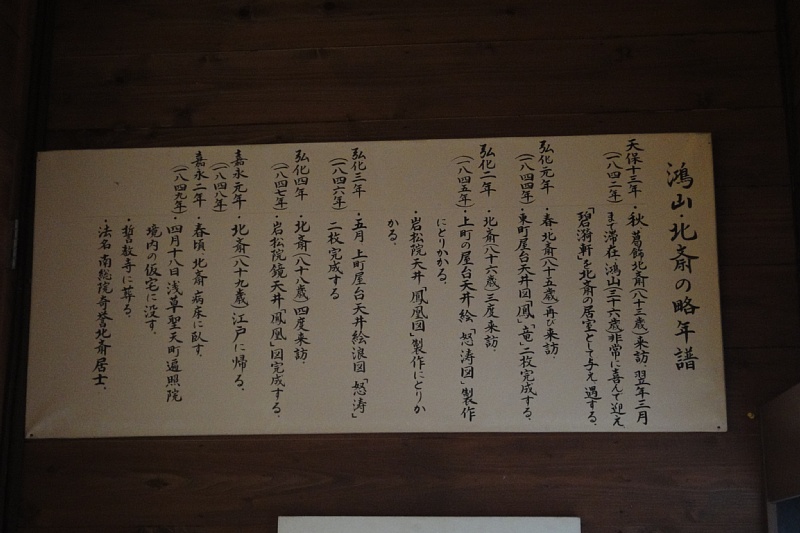 鴻山・北斎の略年譜
天保十三年・秋 葛飾北斎(八十三歳)来訪 翌年二月
(一八四二年) まで滞在、鴻山(三十六歳)非常に喜んで迎え
「碧漪軒」を北斎の居室として与え遇する。
弘化元年・春 北斎(八十五歳)再び来訪、
(一八四四年)・東町屋台天井図「鳳」「竜」二枚完成する。
弘化二年・北斎(八十六歳)三度来訪、
(一八四五年)・上町の屋台天井絵「怒涛図」製作
にとりかかる。
・岩松院天井「鳳凰図」製作にとりか
かる。
弘化三年・五月 上町屋台天井絵浪図「怒涛」
(一八四六年) 二枚完成する
弘化四年・北斎(八十八歳)四度来訪、
(一八四七年)・岩松院鏡天井「鳳凰」図完成する。
嘉永元年・北斎(八十九歳)江戸に帰る。
(一八四八年)
嘉永二年・春頃 北斎 病床に臥す。
(一八四九年)・四月十八日 浅草聖天町遍照院
境内の仮宅に没す。
・誓教寺に葬る。
・法名 南総院奇誉北斎居士、